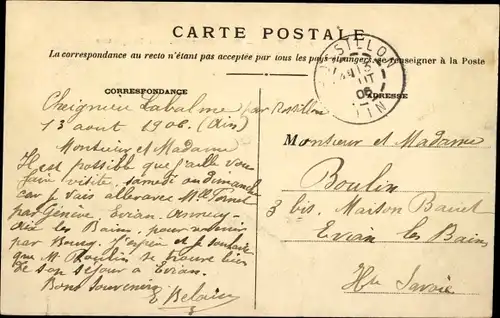 CARTE POSTALE
La correspondance au recto n'étant pas acceptée par tous les pays étrangers, se renseigner à la Poste
CORRESPONDANCE
ADRESSE
Cheignieu Labalme par Rossillon
13 aout 1906. (Ain)
Monsieur et Madame
Il est possible que j'aille vous
faire visite, samedi ou dimanche
car je vais aller avec Mr
par Genève, Evian, Annecy
Aix les Bains, pour revenir
par Bourg. J'espère et je souhaite
que M. Boulin se trouve bien
de son séjour à Evian.
Bons Souvenirs
Monsieur et Madame
Boulin
3 bis, Maison
Evian les Bains
Hte Savoie
ROSSILLON
AIN